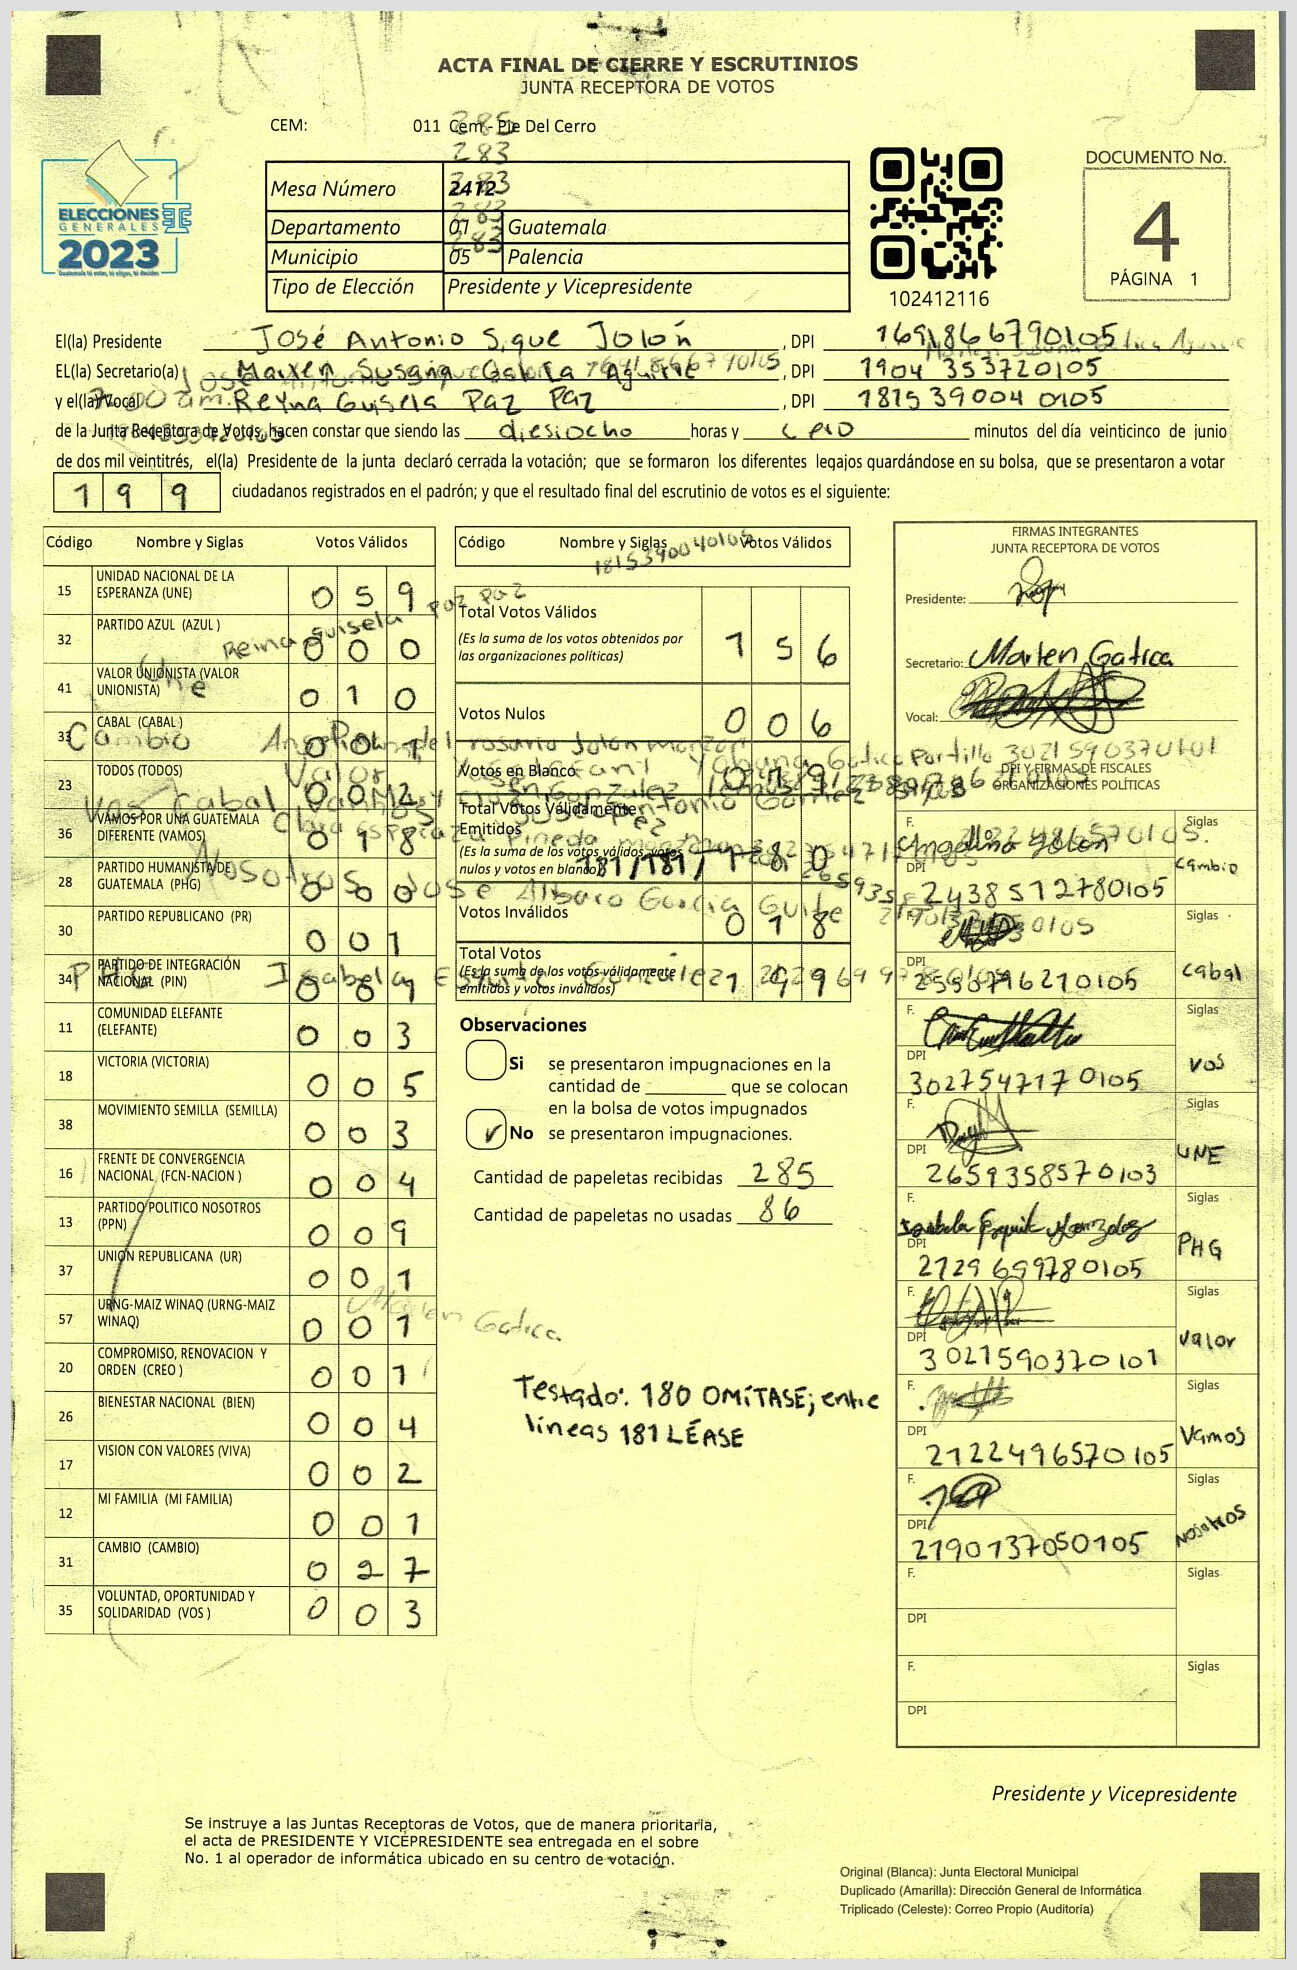 ACTA FINAL DE CIERRE Y ESCRUTINIOS
JUNTA RECEPTORA DE VOTOS
CEM: 011 Cem - Pie Del Cerro
285
283
283
283
283
ELECCIONES
GENERALES
2023
Guatemala tú votas, tú eliges, tú decides
Mesa Número 2412
Departamento 01 Guatemala
Municipio 05 Palencia
Tipo de Elección Presidente y Vicepresidente
102412116
DOCUMENTO No.
4
PÁGINA 1
El(la) Presidente José Antonio Sique Jolón, DPI 1691866790105
EL(la) Secretario(a) Marlen Susana Gatica Aguirre, DPI 1904 353720105
y el(la) Vocal Reyna Guisela Paz Paz, DPI 181539004 0105
de la Junta Receptora de Votos, hacen constar que siendo las diesiocho horas y cero minutos del día veinticinco de junio
de dos mil veintitrés, el(la) Presidente de la junta declaró cerrada la votación; que se formaron los diferentes legajos quardándose en su bolsa, que se presentaron a votar
199 ciudadanos registrados en el padrón; y que el resultado final del escrutinio de votos es el siguiente:
Código Nombre y Siglas Votos Válidos
15 UNIDAD NACIONAL DE LA ESPERANZA (UNE) 059
32 PARTIDO AZUL (AZUL ) 000
41 VALOR UNIONISTA (VALOR UNIONISTA) 010
33 CABAL (CABAL ) 001
23 TODOS (TODOS) 002
36 VAMOS POR UNA GUATEMALA DIFERENTE (VAMOS) 018
28 PARTIDO HUMANISTA DE GUATEMALA (PHG) 000
30 PARTIDO REPUBLICANO (PR) 001
34 PARTIDO DE INTEGRACIÓN NACIONAL (PIN) 001
11 COMUNIDAD ELEFANTE (ELEFANTE) 003
18 VICTORIA (VICTORIA) 005
38 MOVIMIENTO SEMILLA (SEMILLA) 003
16 FRENTE DE CONVERGENCIA NACIONAL (FCN-NACION ) 004
13 PARTIDO POLITICO NOSOTROS (PPN) 009
37 UNION REPUBLICANA (UR) 001
57 URNG-MAIZ WINAQ (URNG-MAIZ WINAQ) 001
20 COMPROMISO, RENOVACION Y ORDEN (CREO ) 001
26 BIENESTAR NACIONAL (BIEN) 004
17 VISION CON VALORES (VIVA) 002
12 MI FAMILIA (MI FAMILIA) 001
31 CAMBIO (CAMBIO) 027
35 VOLUNTAD, OPORTUNIDAD Y SOLIDARIDAD (VOS ) 003
Código Nombre y Siglas Votos Válidos
1815390040105
Reina guisela paz paz
Total Votos Válidos 156
(Es la suma de los votos obtenidos por
las organizaciones políticas)
Votos Nulos 006
Votos en Blanco 019
Total Votos Válidamente
Emitidos 181/181/180
(Es la suma de los votos válidos, votos
nulos y votos en blanco)
Votos Inválidos 018
Total Votos 199
(Es la suma de los votos válidamente
emitidos y votos inválidos)
Observaciones
Si se presentaron impugnaciones en la
cantidad de que se colocan
en la bolsa de votos impugnados
✓ No se presentaron impugnaciones.
Cantidad de papeletas recibidas 285
Cantidad de papeletas no usadas 86
Marlen Gatica
Testado: 180 OMÍTASE; entre
líneas 181 LÉASE
FIRMAS INTEGRANTES
JUNTA RECEPTORA DE VOTOS
Presidente:
Secretario: Marlen Gatica
Vocal:
DPI Y FIRMAS DE FISCALES
ORGANIZACIONES POLÍTICAS
F. Angelina Jolon Siglas
DPI 2438512780105 Cambio
F. Siglas
DPI 2550796210105 Cabal
F. Siglas
DPI 302754717 0105 VOS
F. Siglas
DPI 2659358570103 UNE
F. Isabela Esquit Gonzalez Siglas
DPI 2129699780105 PHG
F. Siglas
DPI 3021590370101 Valor
F. Siglas
DPI 2122496570105 Vamos
F. Siglas
DPI 2190137050105 Nosotros
F. Siglas
DPI
F. Siglas
DPI
Presidente y Vicepresidente
Se instruye a las Juntas Receptoras de Votos, que de manera prioritaria,
el acta de PRESIDENTE Y VICEPRESIDENTE sea entregada en el sobre
No. 1 al operador de informática ubicado en su centro de votación.
Original (Blanca): Junta Electoral Municipal
Duplicado (Amarilla): Dirección General de Informática
Triplicado (Celeste): Correo Propio (Auditoría)